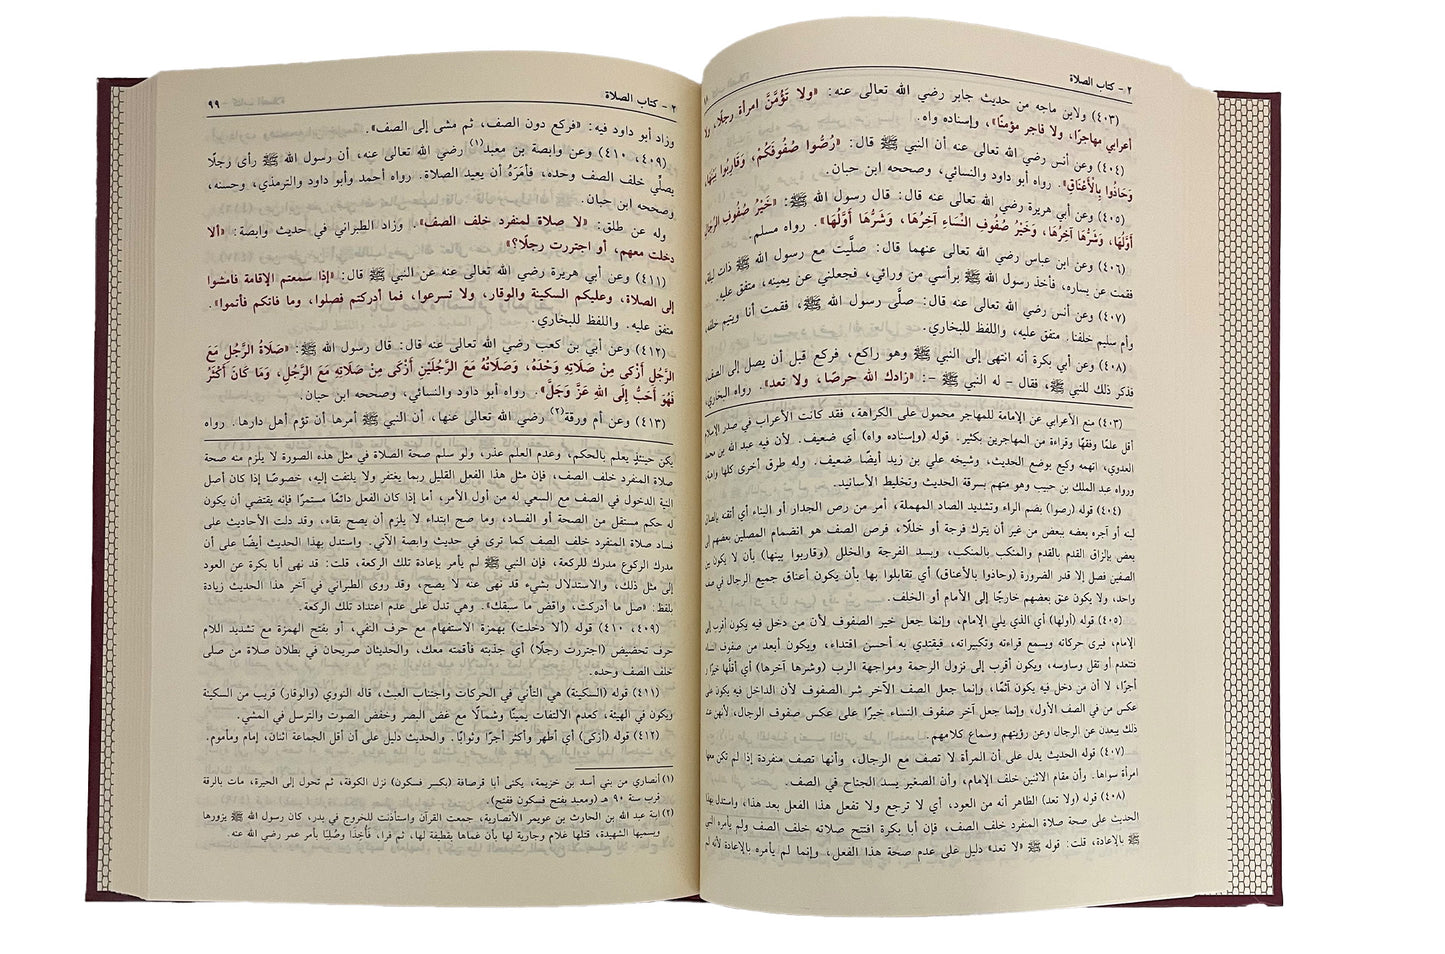 ٢ - كتاب الصلاة
(٤٠٣) ولابن ماجه من حديث جابر رضي الله تعالى عنه: «ولا تَؤُمَّنَّ امرأة رجلًا، ولا
أعرابي مهاجرًا، ولا فاجر مؤمنًا»، وإسناده واه.
(٤٠٤) وعن أنس رضي الله تعالى عنه أن النبي ﷺ قال: «رُصُّوا صُفُوفَكُمْ، وَقَارِبُوا بَيْنَهَا،
وَحَاذُوا بِالْأَعْنَاقِ». رواه أبو داود والنسائي، وصححه ابن حبان.
(٤٠٥) وعن أبي هريرة رضي الله تعالى عنه قال: قال رسول الله ﷺ: «خَيْرُ صُفُوفِ الرِّجَالِ
أَوَّلُهَا، وَشَرُّهَا آخِرُهَا، وَخَيْرُ صُفُوفِ النِّسَاءِ آخِرُهَا، وَشَرُّهَا أَوَّلُهَا». رواه مسلم.
(٤٠٦) وعن ابن عباس رضي الله تعالى عنهما قال: صلَّيت مع رسول الله ﷺ ذات ليلة
فقمت عن يساره، فأخذ رسول الله ﷺ برأسي من ورائي، فجعلني عن يمينه، متفق عليه.
(٤٠٧) وعن أنس رضي الله تعالى عنه قال: صلَّى رسول الله ﷺ، فقمت أنا ويتيم خلفه،
وأم سليم خلفنا. متفق عليه، واللفظ للبخاري.
(٤٠٨) وعن أبي بكرة أنه انتهى إلى النبي ﷺ وهو راكع، فركع قبل أن يصل إلى الصف،
فذكر ذلك للنبي ﷺ، فقال - له النبي ﷺ -: «زادك الله حرصًا، ولا تعد». رواه البخاري،
(٤٠٣) منع الأعرابي عن الإمامة للمهاجر محمول على الكراهة، فقد كانت الأعراب في صدر الإسلام
أقل علمًا وفقهًا وقراءة من المهاجرين بكثير. قوله (وإسناده واه) أي ضعيف. لأن فيه عبد الله بن محمد
العدوي، اتهمه وكيع بوضع الحديث، وشيخه علي بن زيد أيضًا ضعيف. وله طرق أخرى كلها واهية
ورواه عبد الملك بن حبيب وهو متهم بسرقة الحديث وتخليط الأسانيد.
(٤٠٤) قوله (رصوا) بضم الراء وتشديد الصاد المهملة، أمر من رص الجدار أو البناء أي أتقنه بإلصاق
لبنه أو آجره بعضه ببعض من غير أن يترك فرجة أو خللًا، فرص الصف هو انضمام المصلين بعضهم إلى
بعض بإلزاق القدم بالقدم والمنكب بالمنكب، وبسد الفرجة والخلل (وقاربوا بينها) بأن لا يكون بين
الصفين فصل إلا قدر الضرورة (وحاذوا بالأعناق) أي تقابلوا بها بأن يكون أعناق جميع الرجال في صف
واحد، ولا يكون عنق بعضهم خارجًا إلى الأمام أو الخلف.
(٤٠٥) قوله (أولها) أي الذي يلي الإمام، وإنما جعل خير الصفوف لأن من دخل فيه يكون أقرب إلى
الإمام، فيرى حركاته ويسمع قراءته وتكبيراته، فيقتدي به أحسن اقتداء، ويكون أبعد من صفوف النساء
فتنعدم أو تقل وساوسه، ويكون أقرب إلى نزول الرحمة ومواجهة الرب (وشرها آخرها) أي أقلُّها خيرًا و
أجرًا، لا أن من دخل فيه يكون آثمًا، وإنما جعل الصف الآخر شر الصفوف لأن الداخل فيه يكون على
عكس من في الصف الأول، وإنما جعل آخر صفوف النساء خيرًا على عكس صفوف الرجال، لأنهن عند
ذلك يبعدن عن الرجال وعن رؤيتهم وسماع كلامهم.
(٤٠٧) قوله الحديث يدل على أن المرأة لا تصف مع الرجال، وأنها تصف منفردة إذا لم تكن معها
امرأة سواها. وأن مقام الاثنين خلف الإمام، وأن الصغير يسد الجناح في الصف.
(٤٠٨) قوله (ولا تعد) الظاهر أنه من العود، أي لا ترجع ولا تفعل هذا الفعل بعد هذا، واستدل بهذا
الحديث على صحة صلاة المنفرد خلف الصف، فإن أبا بكرة افتتح صلاته خلف الصف ولم يأمره النبي
ﷺ بالإعادة، قلت: قوله ﷺ «لا تعد» دليل على عدم صحة هذا الفعل، وإنما لم يأمره بالإعادة لأنه لم
٢ - كتاب الصلاة ٩٩
وزاد أبو داود فيه: «فركع دون الصف، ثم مشى إلى الصف».
(٤٠٩، ٤١٠) وعن وابصة بن معبد(١) رضي الله تعالى عنه، أن رسول الله ﷺ رأى رجلًا
يصلِّي خلف الصف وحده، فأمَرَهُ أن يعيد الصلاة. رواه أحمد وأبو داود والترمذي، وحسنه،
وصححه ابن حبان.
وله عن طلق: «لا صلاة لمنفرد خلف الصف». وزاد الطبراني في حديث وابصة: «ألا
دخلت معهم، أو اجتررت رجلًا؟»
(٤١١) وعن أبي هريرة رضي الله تعالى عنه عن النبي ﷺ قال: «إذا سمعتم الإقامة فامشوا
إلى الصلاة، وعليكم السكينة والوقار، ولا تسرعوا، فما أدركتم فصلوا، وما فاتكم فأتموا».
متفق عليه. واللفظ للبخاري.
(٤١٢) وعن أبي بن كعب رضي الله تعالى عنه قال: قال رسول الله ﷺ: «صَلَاةُ الرَّجُلِ مَعَ
الرَّجُلِ أَزْكَى مِنْ صَلَاتِهِ وَحْدَهُ، وَصَلَاتُهُ مَعَ الرَّجُلَيْنِ أَزْكَى مِنْ صَلَاتِهِ مَعَ الرَّجُلِ، وَمَا كَانَ أَكْثَرُ
فَهُوَ أَحَبُّ إِلَى اللهِ عَزَّ وَجَلَّ». رواه أبو داود والنسائي، وصححه ابن حبان.
(٤١٣) وعن أم ورقة(٢) رضي الله تعالى عنها، أن النبي ﷺ أمرها إن تؤم أهل دارها. رواه
يكن حينئذٍ يعلم بالحكم، وعدم العلم عذر، ولو سلم صحة الصلاة في مثل هذه الصورة لا يلزم منه صحة
صلاة المنفرد خلف الصف، فإن مثل هذا الفعل القليل ربما يغتفر ولا يلتفت إليه، خصوصًا إذا كان أصل
النية الدخول في الصف مع السعي له من أول الأمر، أما إذا كان الفعل دائمًا مستمرًا فإنه يقتضي أن يكون
له حكم مستقل من الصحة أو الفساد، وما صح ابتداء لا يلزم أن يصح بقاء، وقد دلت الأحاديث على
فساد صلاة المنفرد خلف الصف كما ترى في حديث وابصة الآتي. واستدل بهذا الحديث أيضًا على أن
مدرك الركوع مدرك للركعة، فإن النبي ﷺ لم يأمر بإعادة تلك الركعة، قلت: قد نهى أبا بكرة عن العود
إلى مثل ذلك، والاستدلال بشيء قد نهى عنه لا يصح، وقد روى الطبراني في آخر هذا الحديث زيادة
بلفظ: «صل ما أدركت، واقض ما سبقك». وهي تدل على عدم اعتداد تلك الركعة.
(٤٠٩، ٤١٠) قوله (ألا دخلت) بهمزة الاستفهام مع حرف النفي، أو بفتح الهمزة مع تشديد اللام
حرف تحضيض (اجتررت رجلًا) أي جذبته فأقمته معك، والحديثان صريحان في بطلان صلاة من صلى
خلف الصف وحده.
(٤١١) قوله (السكينة) هي التأني في الحركات واجتناب العبث، قاله النووي (والوقار) قريب من السكينة
ويكون في الهيئة، كعدم الالتفات يمينًا وشمالًا مع غض البصر وخفض الصوت والترسل في المشي.
(٤١٢) قوله (أزكى) أي أطهر وأكثر أجرًا وثوابًا. والحديث دليل على أن أقل الجماعة اثنان، إمام ومأموم.
(١) أنصاري من بني أسد بن خزيمة، يكنى أبا قرصافة (بكسر فسكون) نزل الكوفة، ثم تحول إلى الحيرة، مات بالرقة
قرب سنة ٩٠ هـ (ومعبد بفتح فسكون ففتح).
(٢) ابنة عبد الله بن الحارث بن عويمر الأنصارية، جمعت القرآن واستأذنت للخروج في بدر، كان رسول الله ﷺ يزورها
ويسميها الشهيدة، قتلها غلام وجارية لها بأن غماها بقطيفة لها، ثم فرا، فأخذا وصُلبا بأمر عمر رضي الله عنه.